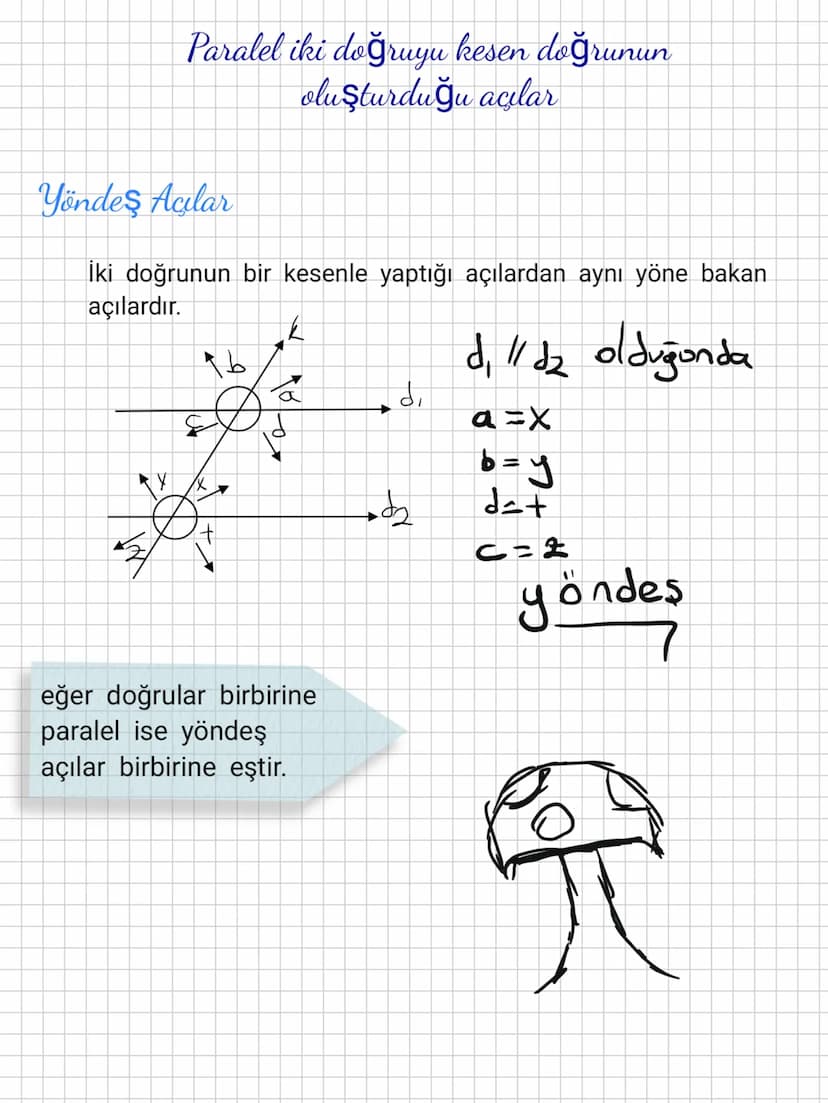 Paralel iki doğruyu kesen doğrunun
oluşturduğu açılar
Yöndeş Açılar
İki doğrunun bir kesenle yaptığı açılardan aynı yöne bakan
açılardır.
k
b
a
d₁
c
d
y
x
d₂
z
t
d₁ // d₂ olduğunda
a = x
b = y
d = t
c = z
yöndeş
eğer doğrular birbirine
paralel ise yöndeş
açılar birbirine eştir.